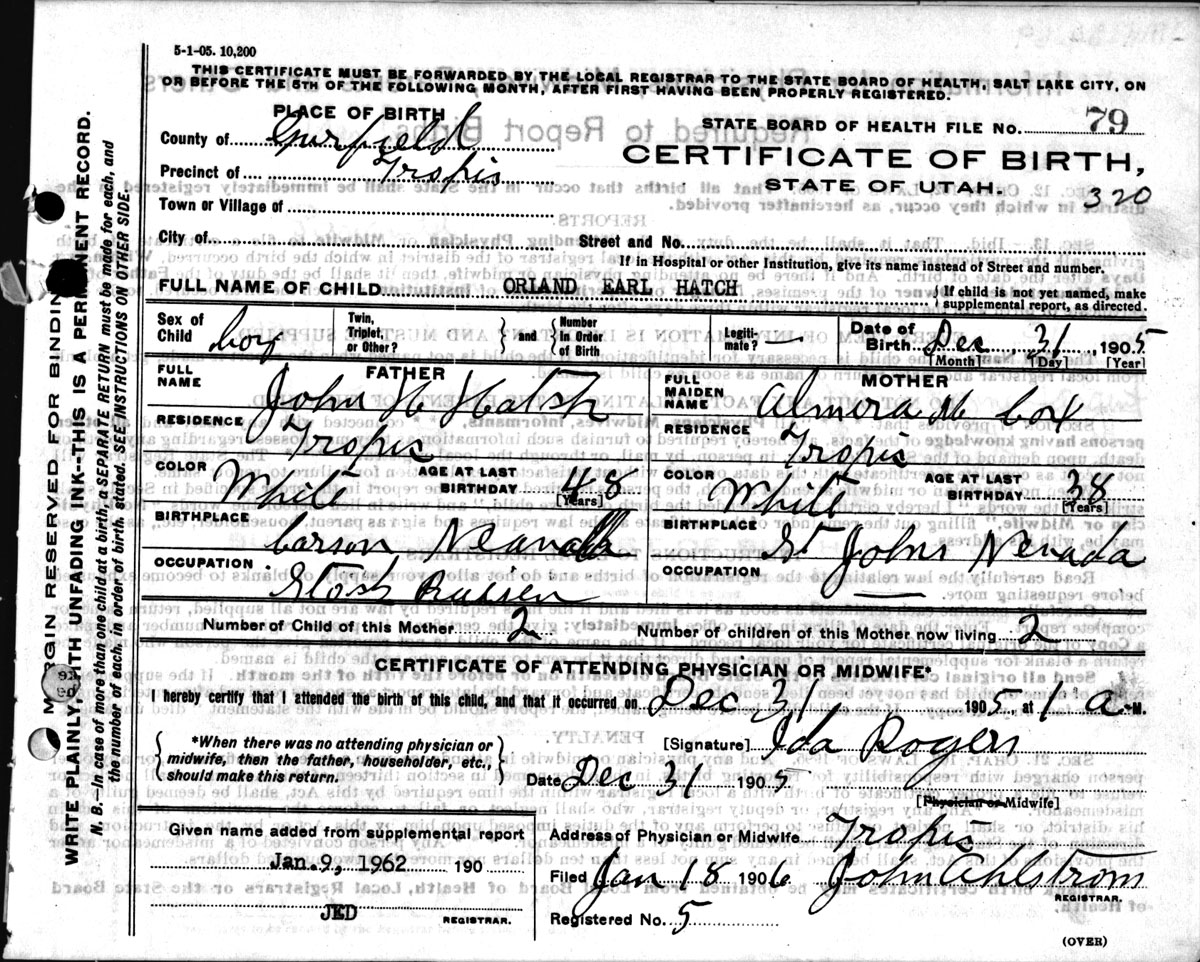 5-1-05. 10,200
THIS CERTIFICATE MUST BE FORWARDED BY THE LOCAL REGISTRAR TO THE STATE BOARD OF HEALTH, SALT LAKE CITY, ON
OR BEFORE THE 5TH OF THE FOLLOWING MONTH, AFTER FIRST HAVING BEEN PROPERLY REGISTERED.
PLACE OF BIRTH
STATE BOARD OF HEALTH FILE NO. 79
County of Garfield
CERTIFICATE OF BIRTH,
Precinct of Tropic
STATE OF UTAH.
320
Town or Village of
City of
Street and No.
If in Hospital or other Institution, give its name instead of Street and number.
FULL NAME OF CHILD ORLAND EARL HATCH { If child is not yet named, make supplemental report, as directed.
Sex of Child boy Twin, Triplet, or Other? } and { Number in Order of Birth Legiti- mate? Date of Birth Dec 31 1905
[Month] [Day] [Year]
FATHER
MOTHER
FULL NAME John H Hatch
FULL MAIDEN NAME Almira M Cox
RESIDENCE Tropic
RESIDENCE Tropic
COLOR White AGE AT LAST BIRTHDAY 48 [Years]
COLOR White AGE AT LAST BIRTHDAY 38 [Years]
BIRTHPLACE Carson
BIRTHPLACE St Johns Nevada
OCCUPATION
OCCUPATION
Number of Child of this Mother 2
Number of children of this Mother now living 2
CERTIFICATE OF ATTENDING PHYSICIAN OR MIDWIFE*
I hereby certify that I attended the birth of this child, and that it occurred on Dec 31 1905, at 1 a M.
{ *When there was no attending physician or midwife, then the father, householder, etc., should make this return. }
[Signature] Ida Rogers
Date Dec 31 1905
[Physician or Midwife]
Given name added from supplemental report
Jan. 9, 1962 190
JED
REGISTRAR.
Address of Physician or Midwife Tropic
Filed Jan 18 1906 John Ahlstrom
REGISTRAR.
Registered No. 5
(OVER)
MARGIN RESERVED FOR BINDING
WRITE PLAINLY, WITH UNFADING INK--THIS IS A PERMANENT RECORD.
N. B.--In case of more than one child at a birth, a SEPARATE RETURN must be made for each, and
the number of each, in order of birth, stated. SEE INSTRUCTIONS ON OTHER SIDE.